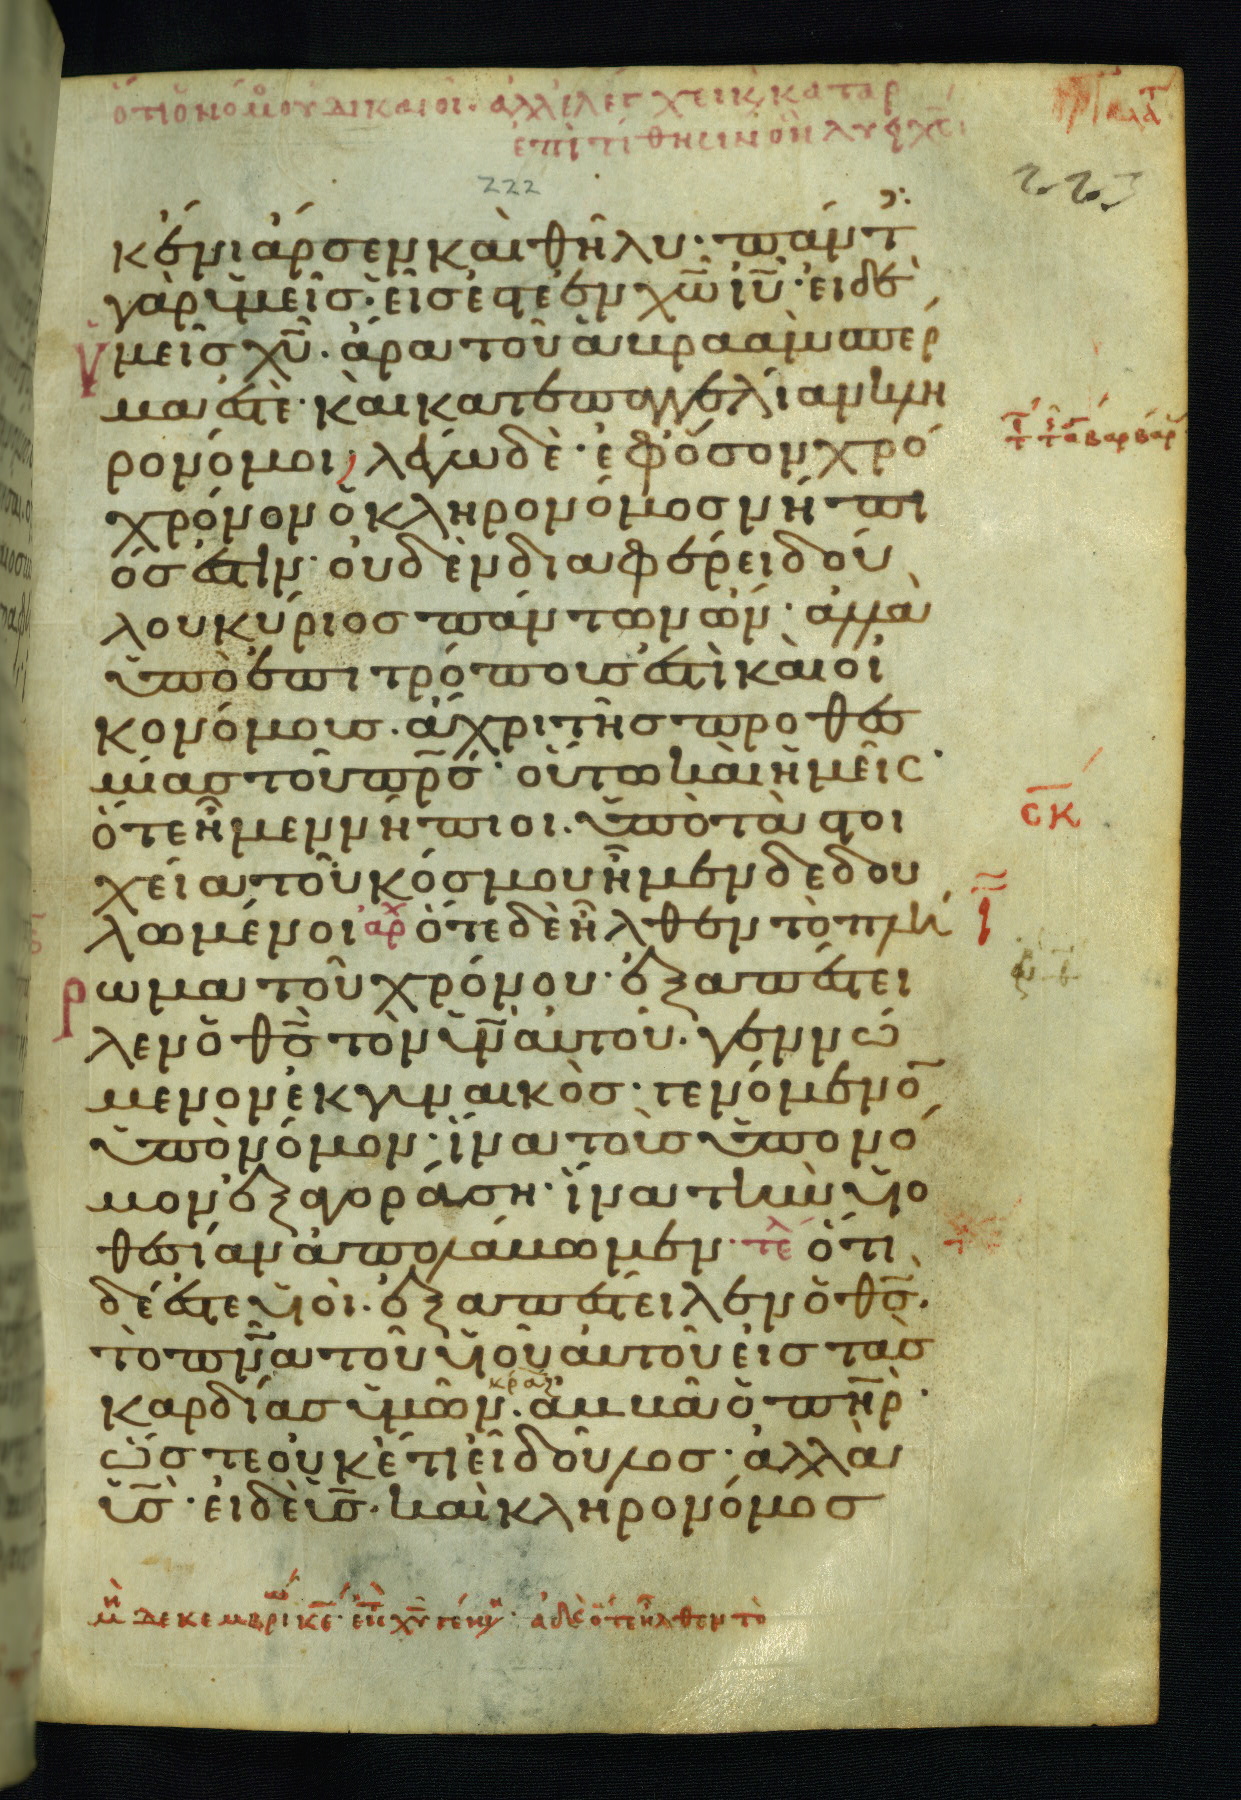 ὅτι ὁ νόμος οὐ δικαιοῖ. ἀλλ' ἐλέγχει κ κατάρ
ἐπιτίθησιν ἣν λύει χς
222
223
κ ἔνι ἄρσεν καὶ θῆλυ· πάντ
γὰρ ὑμεῖς· εἷς ἐστε ἐν χω ιυ· εἰ δὲ
ὑμεῖς χυ. ἄρα τοῦ ἀβραὰμ σπέρ
μα ἐστέ· καὶ κατ ἐπαγγελίαν κλη
ρονόμοι· λέγω δὲ· ἐφ ὅσον χρό
χρόνον ὁ κληρονόμος νήπι
ός ἐστιν· οὐδὲν διαφέρει δού
λου κύριος πάντων ὤν· ἀλλὰ
ὑπὸ ἐπιτρόπους ἐστὶ καὶ οἰ
κονόμους. ἄχρι τῆς προθεσ
μίας τοῦ πρς· οὕτω καὶ ἡμεῖς
ὅτε ἦμεν νήπιοι. ὑπὸ τὰ στοι
χεῖα τοῦ κόσμου ἦμεν δεδου
λωμένοι αρχ ὅτε δὲ ἦλθεν τὸ πλή
ρωμα τοῦ χρόνου· ἐξαπέστει
λεν ὁ θς τὸν υν αὐτοῦ. γεννώ
μενον ἐκ γυναικὸς· γενόμενο
ὑπὸ νόμον· ἵνα τοὺς ὑπο νό
μον ἐξαγοράσῃ· ἵνα τὴν υἱο
θεσίαν ἀπολάβωμεν· τελ ὅτι
δέ ἐστε υἱοὶ. ἐξαπέστειλεν ὁ θς.
τὸ πνα τοῦ υἱοῦ αὐτοῦ εἰς τὰς
καρδίας ὑμῶν. κράζ ἀββᾶ ὁ πηρ·
ὥστε οὐκέτι εἶ δοῦλος· ἀλλὰ
υς· εἰ δὲ υς. καὶ κληρονόμος
σκ
μη δεκεμβρι κε· εἰς χυ γένν· ἀδε ὅτε ἦλθεν τὸ